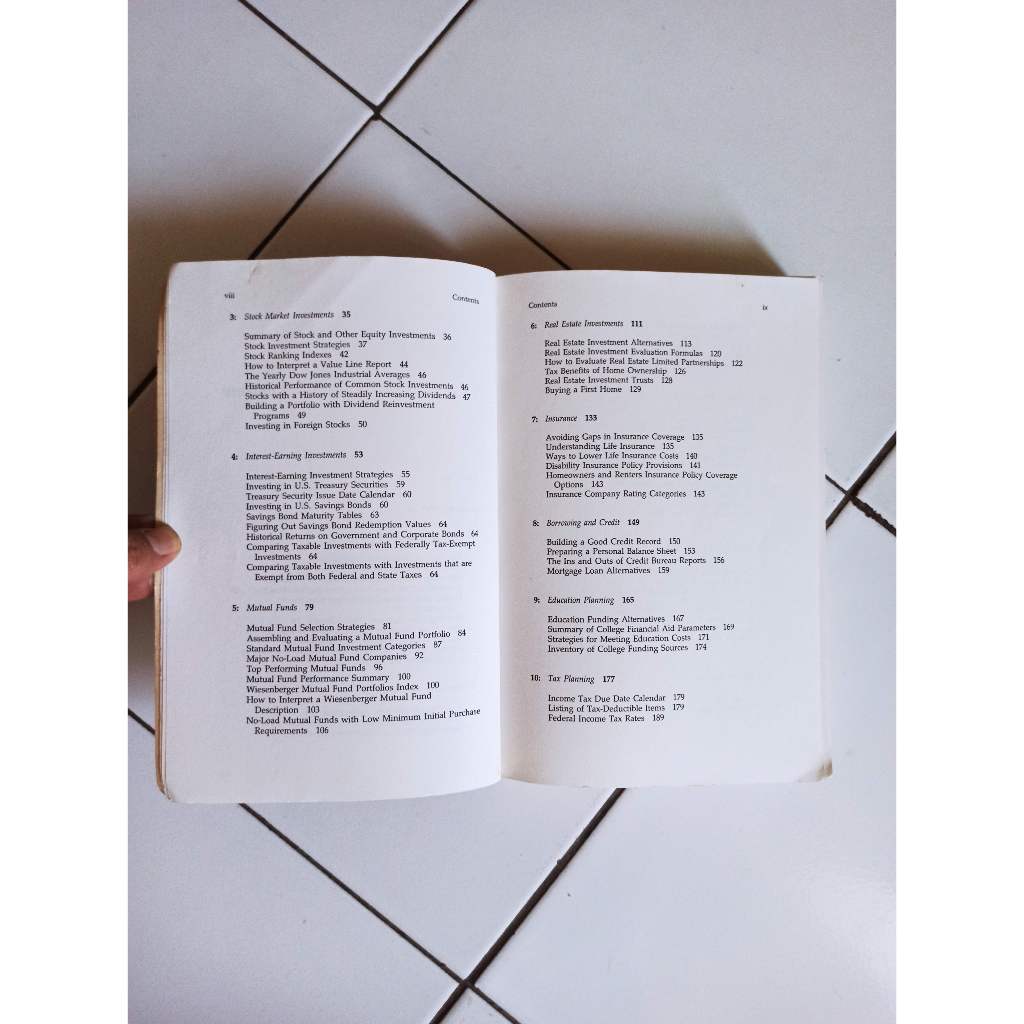 viii
Contents
3: Stock Market Investments 35
Summary of Stock and Other Equity Investments 36
Stock Investment Strategies 37
Stock Ranking Indexes 42
How to Interpret a Value Line Report 44
The Yearly Dow Jones Industrial Averages 46
Historical Performance of Common Stock Investments 46
Stocks with a History of Steadily Increasing Dividends 47
Building a Portfolio with Dividend Reinvestment
Programs 49
Investing in Foreign Stocks 50
4: Interest-Earning Investments 53
Interest-Earning Investment Strategies 55
Investing in U.S. Treasury Securities 59
Treasury Security Issue Date Calendar 60
Investing in U.S. Savings Bonds 60
Savings Bond Maturity Tables 63
Figuring Out Savings Bond Redemption Values 64
Historical Returns on Government and Corporate Bonds 64
Comparing Taxable Investments with Federally Tax-Exempt
Investments 64
Comparing Taxable Investments with Investments that are
Exempt from Both Federal and State Taxes 64
5: Mutual Funds 79
Mutual Fund Selection Strategies 81
Assembling and Evaluating a Mutual Fund Portfolio 84
Standard Mutual Fund Investment Categories 87
Major No-Load Mutual Fund Companies 92
Top Performing Mutual Funds 96
Mutual Fund Performance Summary 100
Wiesenberger Mutual Fund Portfolios Index 100
How to Interpret a Wiesenberger Mutual Fund
Description 103
No-Load Mutual Funds with Low Minimum Initial Purchase
Requirements 106
Contents
ix
6: Real Estate Investments 111
Real Estate Investment Alternatives 113
Real Estate Investment Evaluation Formulas 120
How to Evaluate Real Estate Limited Partnerships 122
Tax Benefits of Home Ownership 126
Real Estate Investment Trusts 128
Buying a First Home 129
7: Insurance 133
Avoiding Gaps in Insurance Coverage 135
Understanding Life Insurance 135
Ways to Lower Life Insurance Costs 140
Disability Insurance Policy Provisions 141
Homeowners and Renters Insurance Policy Coverage
Options 143
Insurance Company Rating Categories 143
8: Borrowing and Credit 149
Building a Good Credit Record 150
Preparing a Personal Balance Sheet 153
The Ins and Outs of Credit Bureau Reports 156
Mortgage Loan Alternatives 159
9: Education Planning 165
Education Funding Alternatives 167
Summary of College Financial Aid Parameters 169
Strategies for Meeting Education Costs 171
Inventory of College Funding Sources 174
10: Tax Planning 177
Income Tax Due Date Calendar 179
Listing of Tax-Deductible Items 179
Federal Income Tax Rates 189